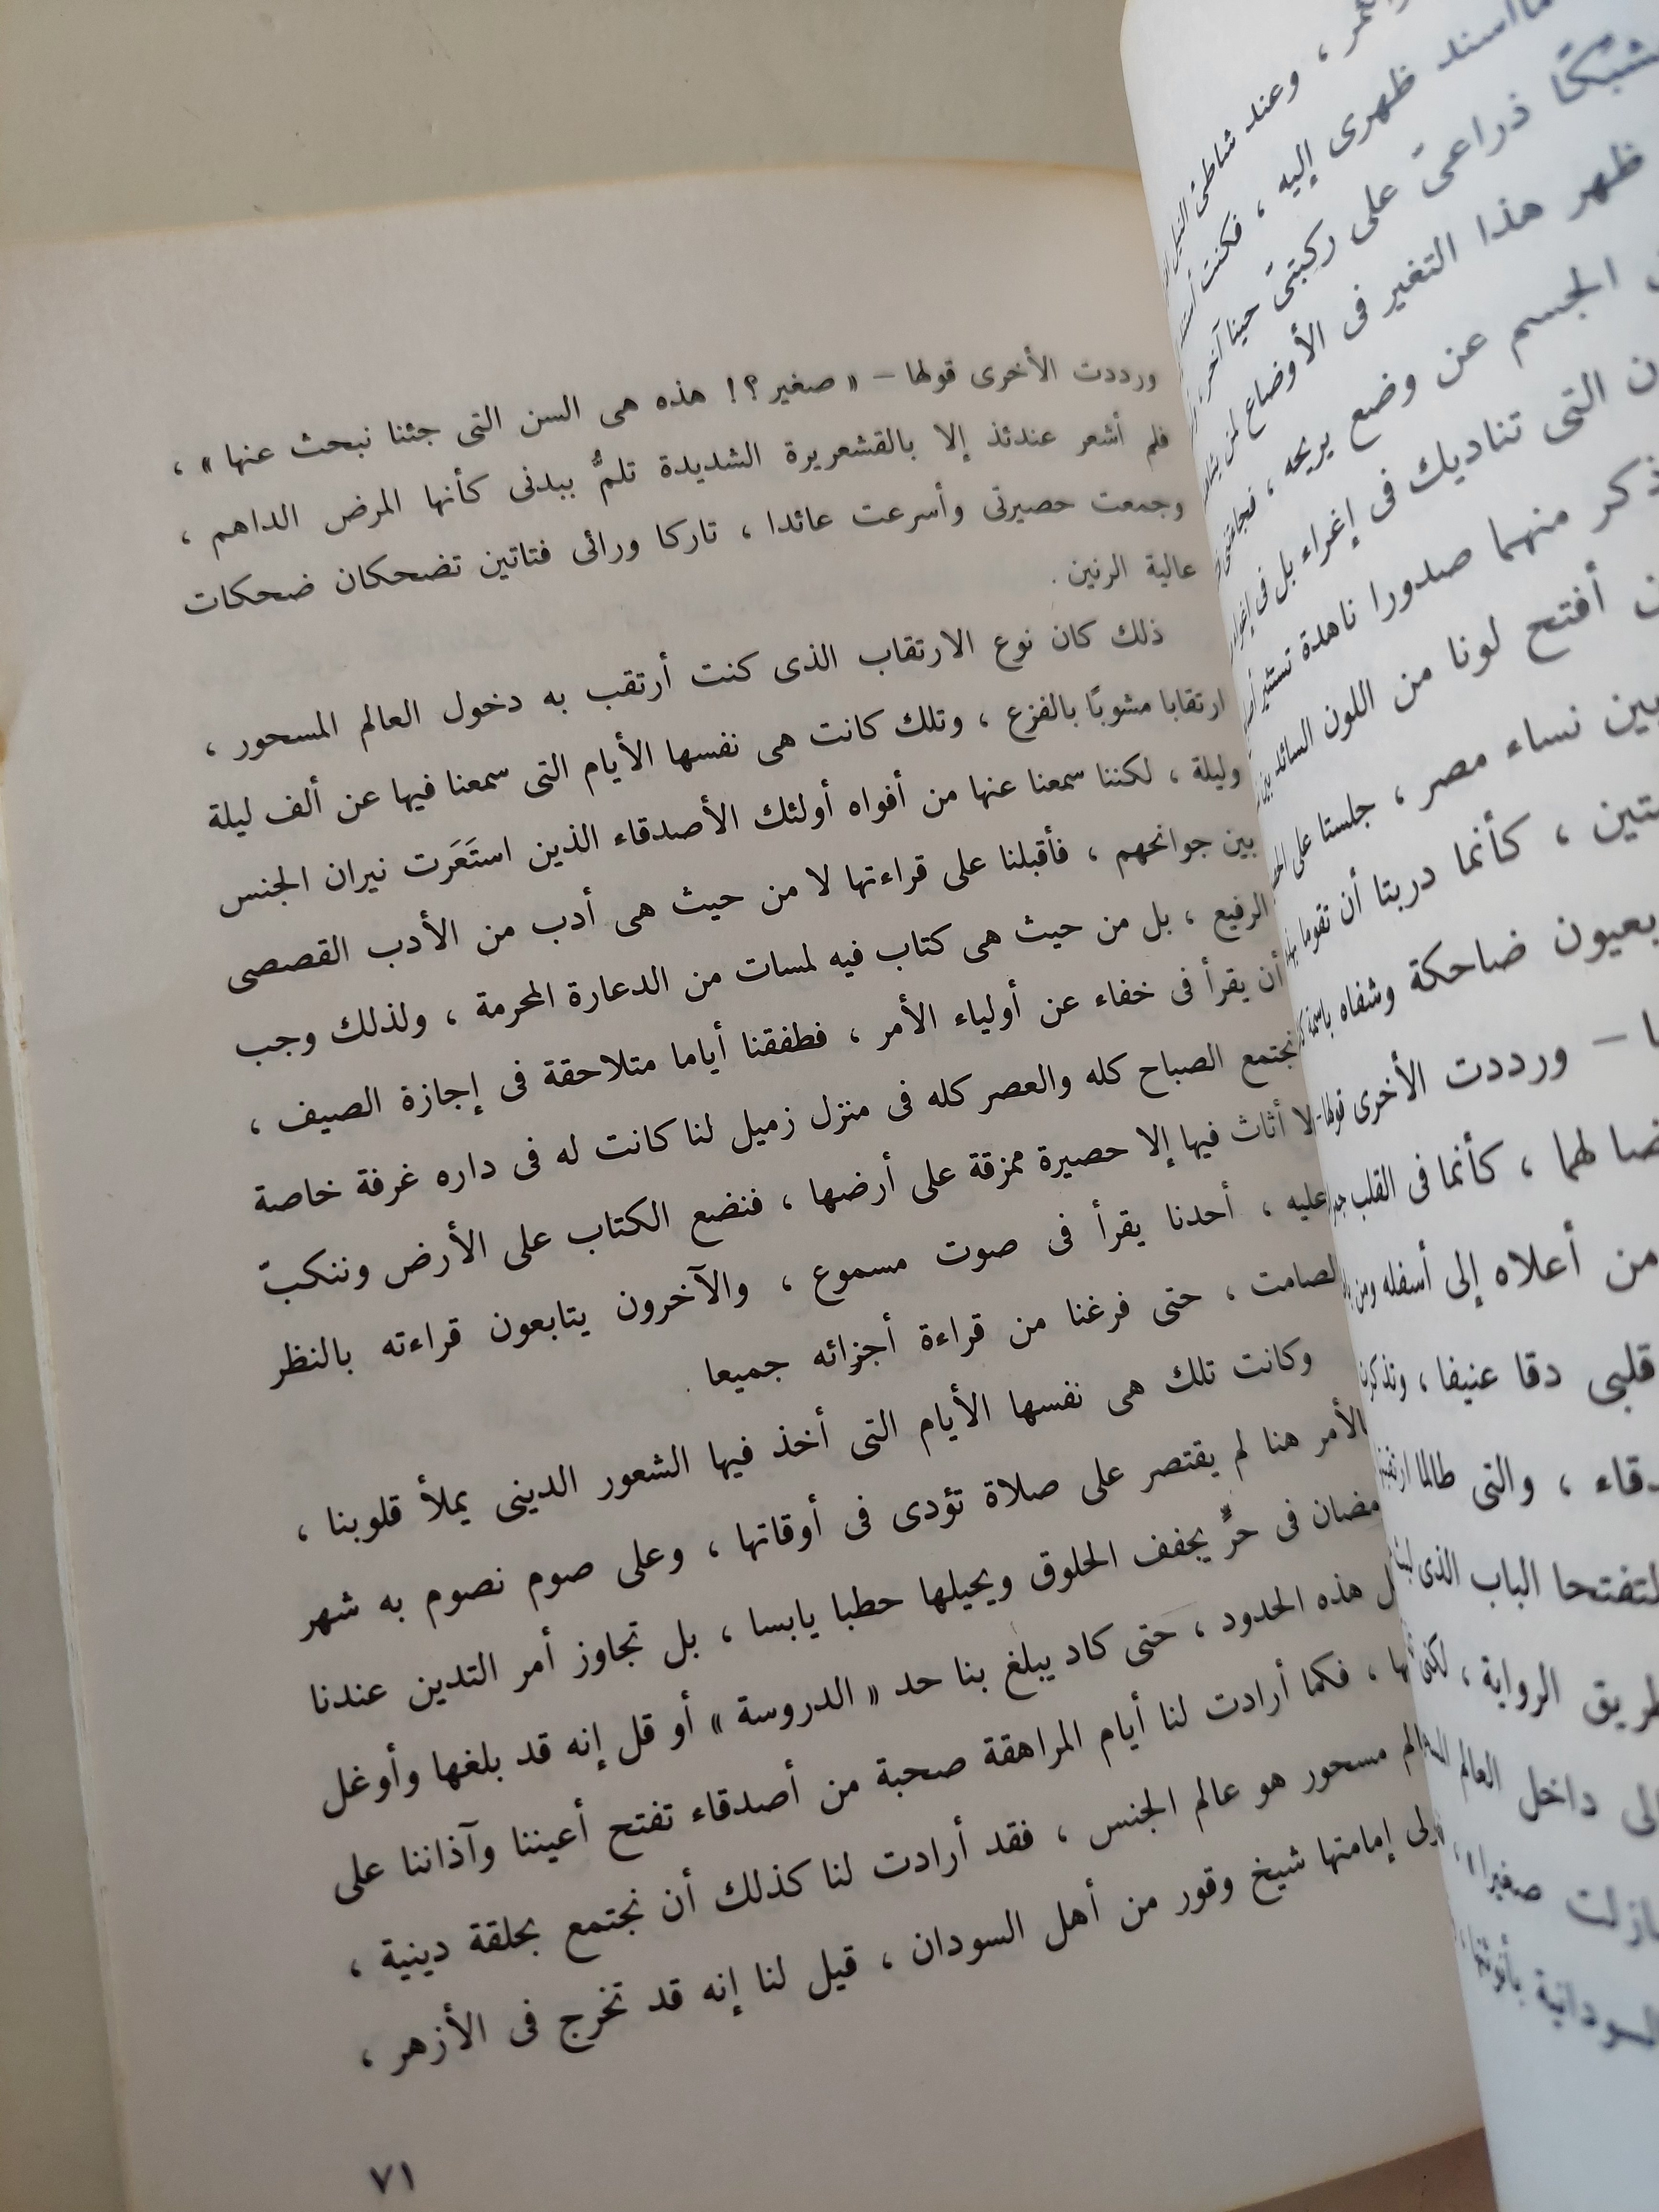 ورددت الأخرى قولها – « صغير ؟! هذه هى السن التى جئنا نبحث عنها » ،
فلم أشعر عندئذ إلا بالقشعريرة الشديدة تلمُّ ببدنى كأنها المرض الداهم ،
وجمعت حصيرتى وأسرعت عائدا ، تاركا ورائى فتاتين تضحكان ضحكات
عالية الرنين .
ذلك كان نوع الارتقاب الذى كنت أرتقب به دخول العالم المسحور ،
ارتقابا مشوبًا بالفزع ، وتلك كانت هى نفسها الأيام التى سمعنا فيها عن ألف ليلة
وليلة ، لكننا سمعنا عنها من أفواه أولئك الأصدقاء الذين استَعَرت نيران الجنس
بين جوانحهم ، فأقبلنا على قراءتها لا من حيث هى أدب من الأدب القصصى
الرفيع ، بل من حيث هى كتاب فيه لمسات من الدعارة المحرمة ، ولذلك وجب
أن يقرأ فى خفاء عن أولياء الأمر ، فطفقنا أياما متلاحقة فى إجازة الصيف ،
نجتمع الصباح كله والعصر كله فى منزل زميل لنا كانت له فى داره غرفة خاصة
لا أثاث فيها إلا حصيرة ممزقة على أرضها ، فنضع الكتاب على الأرض وننكبّ
عليه ، أحدنا يقرأ فى صوت مسموع ، والآخرون يتابعون قراءته بالنظر
الصامت ، حتى فرغنا من قراءة أجزائه جميعا .
وكانت تلك هى نفسها الأيام التى أخذ فيها الشعور الدينى يملأ قلوبنا ،
الأمر هنا لم يقتصر على صلاة تؤدى فى أوقاتها ، وعلى صوم نصوم به شهر
مضان فى حرٍّ يجفف الحلوق ويحيلها حطبا يابسا ، بل تجاوز أمر التدين عندنا
هذه الحدود ، حتى كاد يبلغ بنا حد « الدروسة » أو قل إنه قد بلغها وأوغل
، فكما أرادت لنا أيام المراهقة صحبة من أصدقاء تفتح أعيننا وآذاننا على
مسحور هو عالم الجنس ، فقد أرادت لنا كذلك أن نجتمع بحلقة دينية ،
إمامتها شيخ وقور من أهل السودان ، قيل لنا إنه قد تخرج فى الأزهر ،
٧١
، وعند شاطئ النيل
ظهرى إليه ، فكنت
ذراعىّ على ركبتىّ حينا آخر ،
ظهر هذا التغير فى الأوضاع لمن
الجسم عن وضع يريحه ،
التى تناديك فى إغراء بل فى
منهما صدورا ناهدة تستثير
أفتح لونا من اللون السائد بين
بين نساء مصر ، جلستا على
، كأنما دربتا أن تقوما
بعيون ضاحكة وشفاه باسمة
– ورددت الأخرى قولها –
لهما ، كأنما فى القلب
من أعلاه إلى أسفله ومن
قلبى دقا عنيفا ،
، والتى طالما
لتفتحا الباب الذى
الرواية ، لكن
داخل العالم
صغيرا » ،